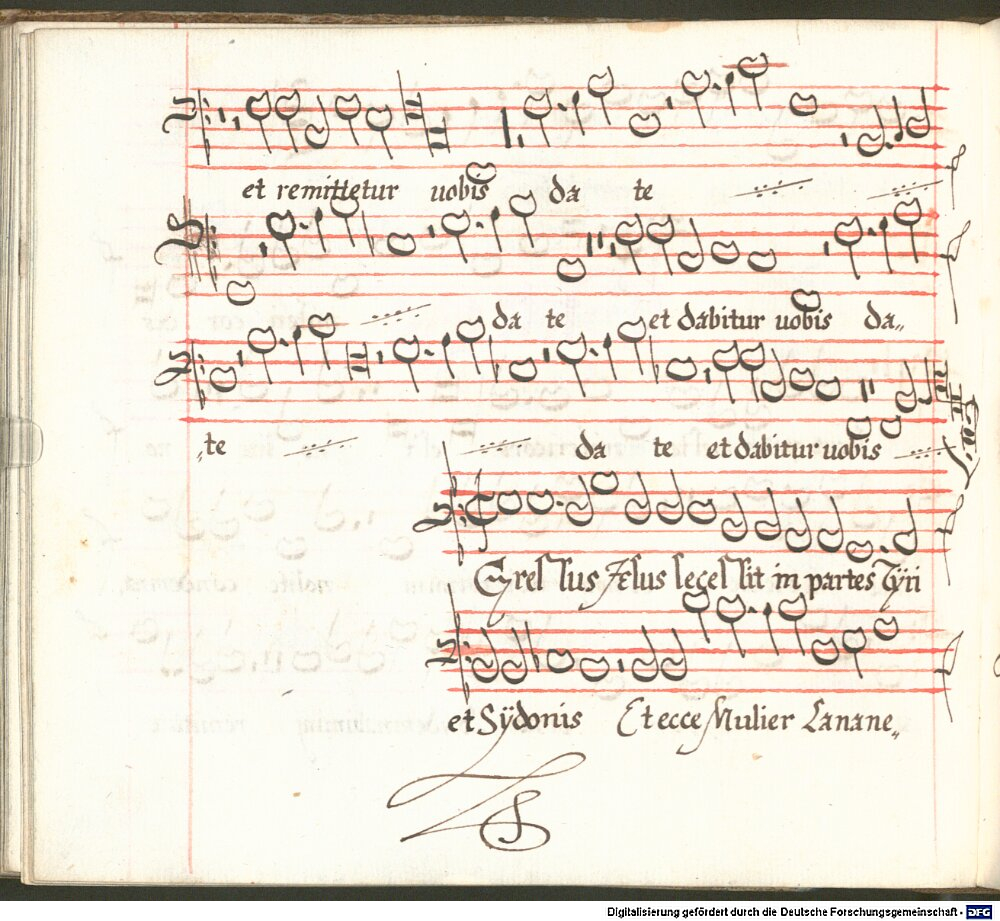 et remittetur uobis da te
da te et dabitur uobis da„
„te da te et dabitur uobis
Egressus Jesus secessit in partes Tyri
et Sÿdonis Et ecce Mulier Canane„
Digitalisierung gefördert durch die Deutsche Forschungsgemeinschaft - DFG